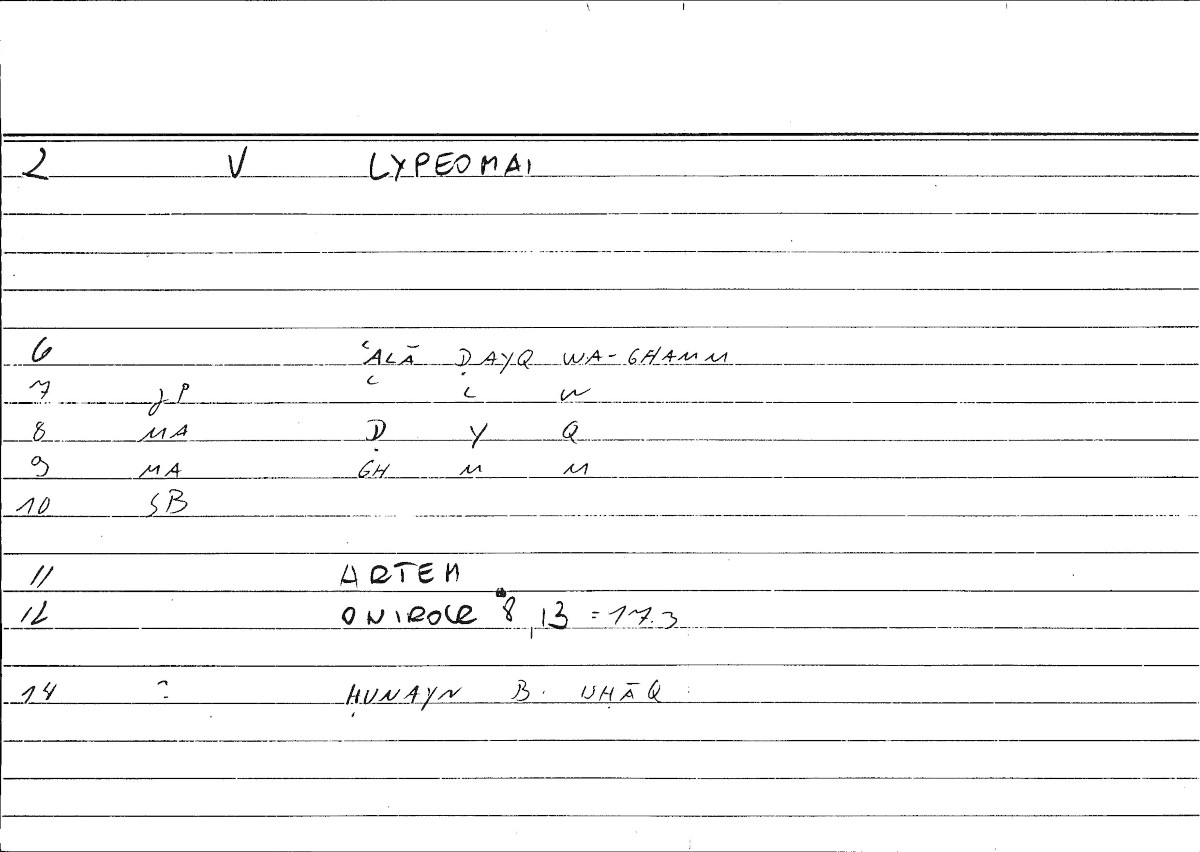 2 V LYPEOMAI
6 ʿALĀ ḌAYQ WA-GHAMM
7 JP ʿ L W
8 MA Ḍ Y Q
9 MA GH M M
10 SB
11 ARTEM
12 ONIROCR 8,13 = 17.3
14 ? ḤUNAYN B.